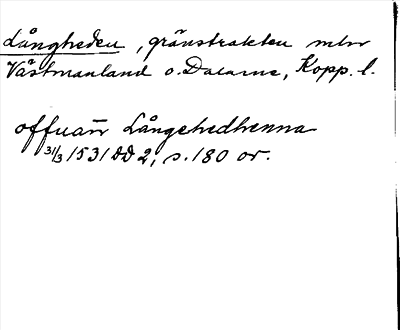 Långheden, gränstrakten mlm
Västmanland o. Dalarne, Kopp. l.
offuan Långehedhenna
31/3 1531 DD 2, s. 180 or.